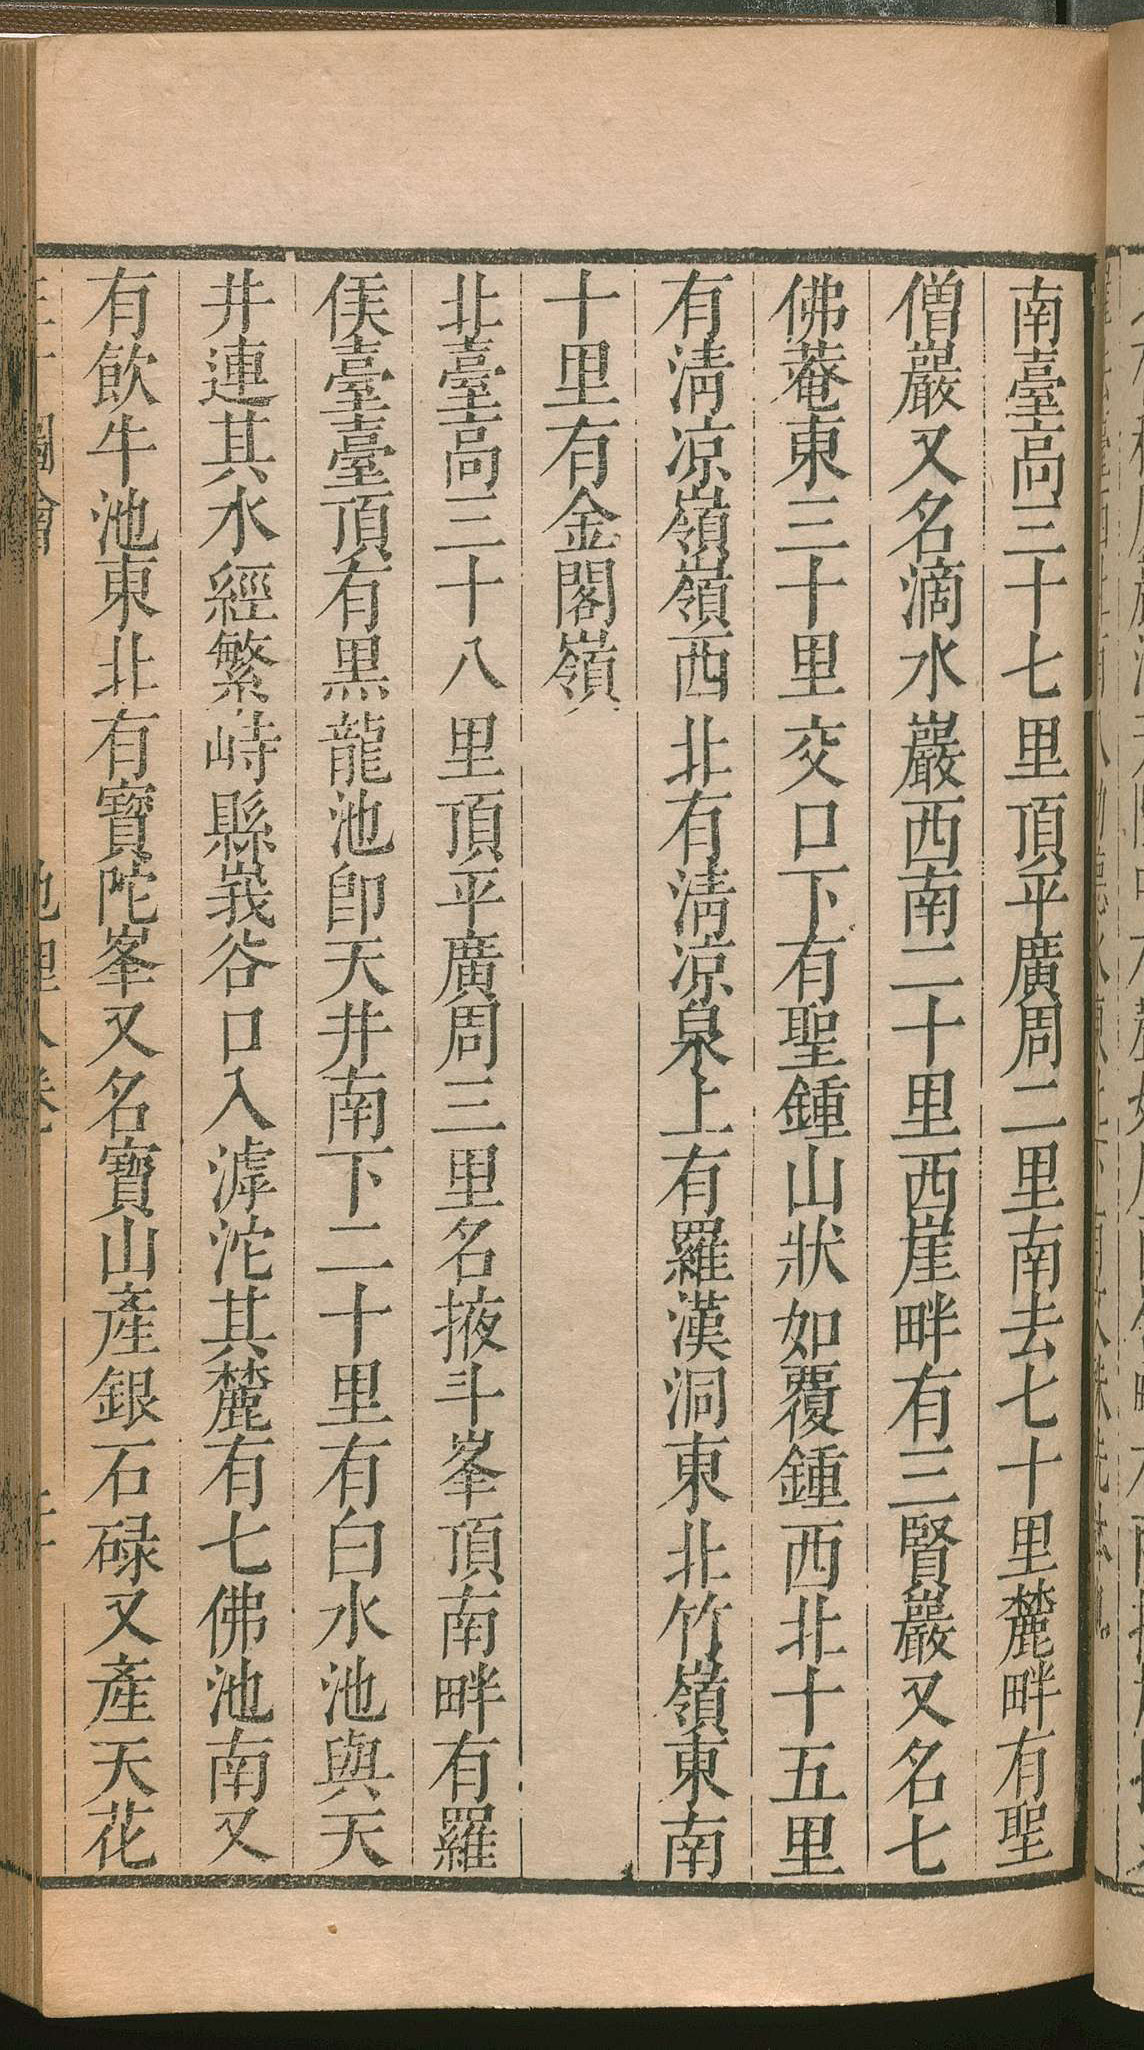 南臺高三十七里頂平廣周二里南去七十里麓畔有聖
僧巖又名滴水巖西南二十里西崖畔有三賢巖又名七
佛菴東三十里交口下有聖鍾山狀如覆鍾西北十五里
有淸凉嶺嶺西北有淸凉泉上有羅漢洞東北竹嶺東南
十里有金閣嶺
北臺高三十八里頂平廣周三里名掖斗峯頂南畔有羅
㑨臺臺頂有黑龍池卽天井南下二十里有白水池與天
井連其水經繁峙縣峩谷口入滹沱其麓有七佛池南又
有飮牛池東北有寶陀峯又名寶山產銀石碌又產天花
圖會 地理八卷